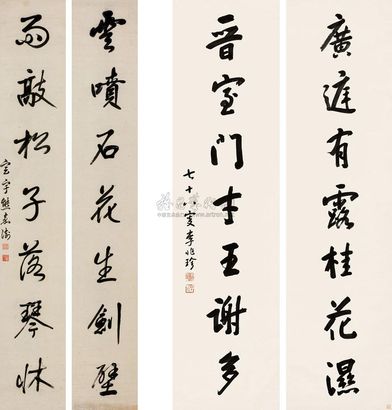 廣庭有露桂花濕
晉室門才王謝多
七十八叟李兆珍
雲噴石花生劍壁
雨敲松子落琴牀